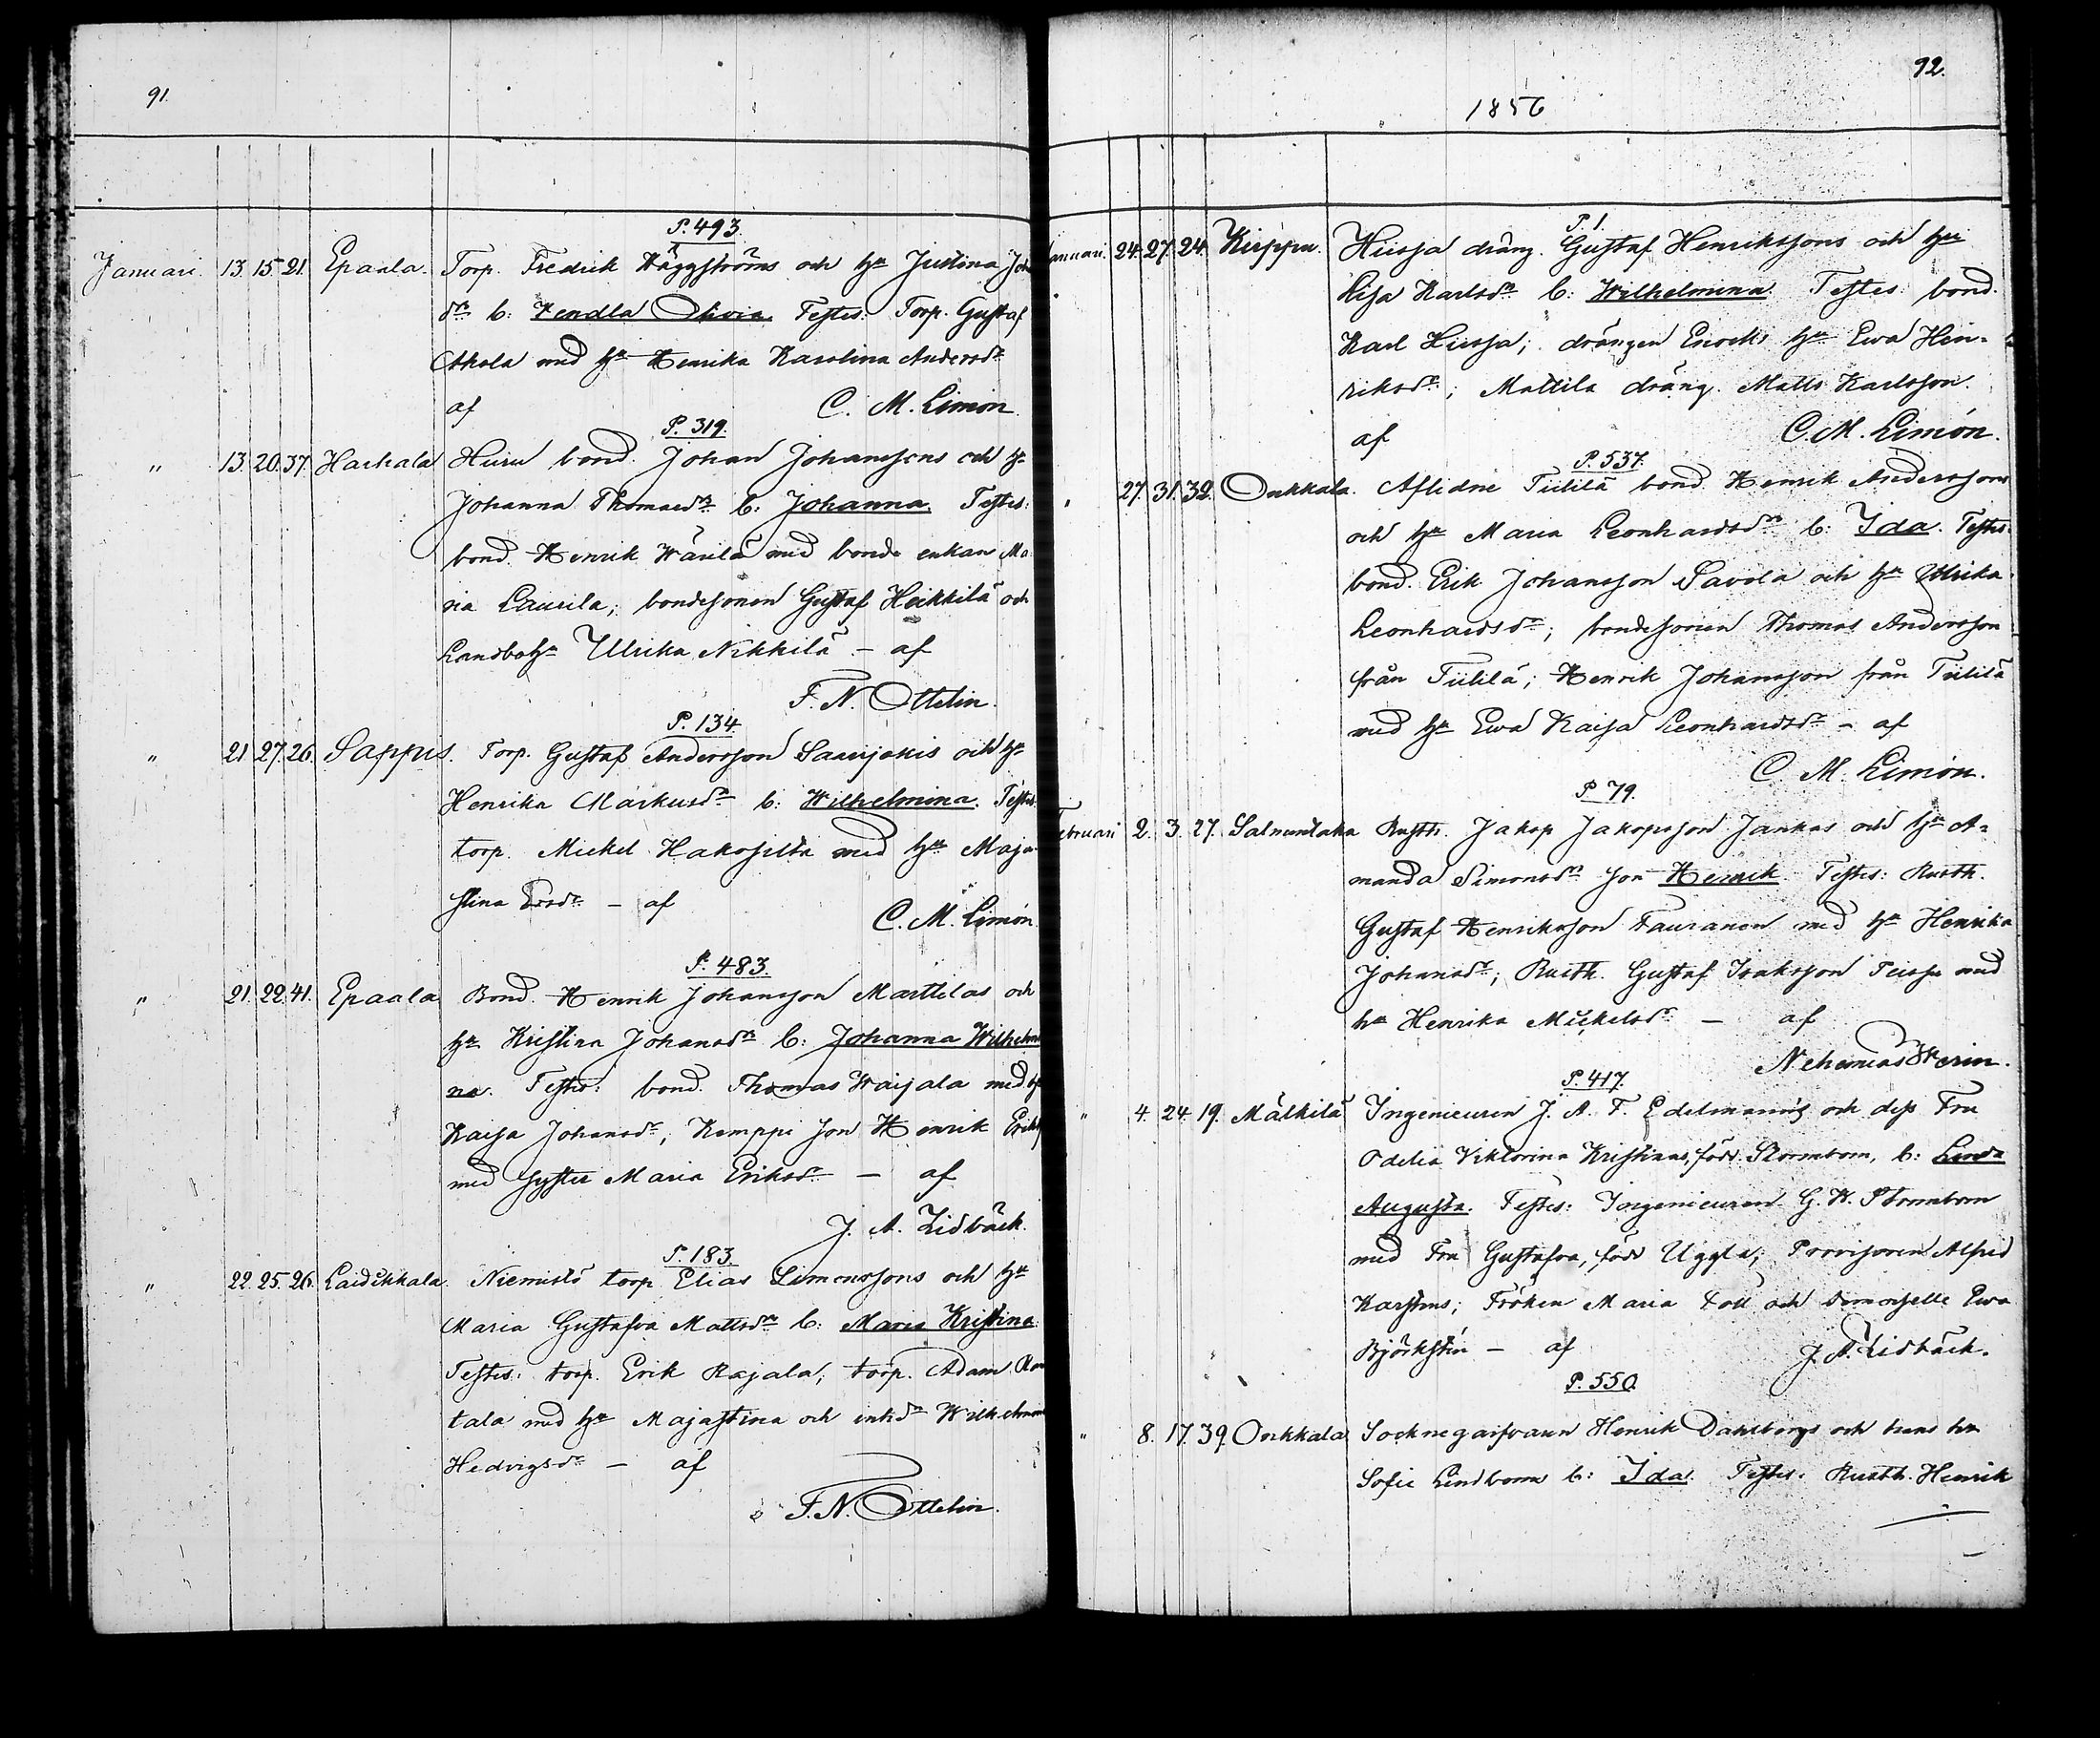 91.
P. 493.
Januari. 13. 15. 21. Epaala. Torp. Fredrik Häggströms och hu Justina Joh
dr b: Wendla Olivia. Testes: Torp. Gustaf
Ahola med hu Henrika Karolina Andersdr
af C. M. Limón.
P. 319.
" 13. 20. 37. Harhala Huru bond. Johan Johanssons och hu
Johanna Thomasdrs b: Johanna. Testes:
bond. Henrik Wärilä med bonde enkan Ma
ria Laurila; bondesonen Gustaf Heikkilä och
Landbohu Ulrika Nikkilä - af
F. N. Ottelin.
P. 134.
" 21. 27. 26. Sappus. Torp. Gustaf Andersson Saarijokis och hu
Henrika Markusdr b: Wilhelmina. Testes:
torp. Mickel Hakosilta med hu Maja
stina Ersdr - af
C. M. Limón.
P. 483.
" 21. 22. 41. Epaala Bond. Henrik Johansson Marttilas och
hu Kristina Johansdrs b: Johanna Wilhelmi
na. Testes: bond. Thomas Waijala med hu
Kaisa Johansdr; Kemppi son Henrik Eriks
med syster Maria Eriksdr - af
J. A. Lidbäck.
P. 183.
" 22. 25. 26. Laidikkala. Niemistö torp. Elias Simonssons och hu
Maria Gustafva Mattsdrs b: Maria Kristina.
Testes: torp. Erik Rajala; torp. Adam Ran
tala med hu Majastina och Wilhelmina
Hedvigsdr - af
F. N. Ottelin.
92.
1856
P. 1.
Januari. 24. 27. 24. Kirppu. Hiissa dräng. Gustaf Henrikssons och hu
Lisa Karlsdrs b: Wilhelmina. Testes: bond.
Karl Hiissa; drängen Enocks hu Ewa Hen-
riksdr; Mattila dräng. Matts Karlsson.
af C. M. Limón.
P. 537.
" 27. 31. 32. Onkkala. Aflidne Tiililä bond. Henrik Anderssons
och hu Maria Leonhardsdrs b: Ida. Testes:
bond. Erik Johansson Savola och hu Ulrika
Leonhardsdr; bondesonen Thomas Andersson
från Tiililä; Henrik Johansson från Tiililä
med hu Ewa Kaisa Leonhardsdr - af
C. M. Limón.
P. 79.
Februari 2. 3. 27. Salmentaka Rusth. Jakop Jakopsson Jankas och hu A-
manda Simonsdrs son Henrik. Testes: Rusth.
Gustaf Henriksson Tauranen med hu Henrika
Johansdr; Rusth. Gustaf Isaksson Teissu med
hu Henrika Mickelsdr - af
Nehemias Werin.
P. 417.
" 4. 24. 19. Mälkilä Ingenieuren J. A. F. Edelmanns och dess Fru
Odelia Viktorina Kristinas, född Stormbom, b: Linda
Augusta. Testes: Ingenieuren G. W. Stormbom
med Fru Gustafva, född Uggla; Provisoren Alfred
Karstens; Fröken Maria Toll och Demoiselle Ewa
Björkstén - af J. A. Lidbäck.
P. 550.
" 8. 17. 39. Onkkala Socknegarfvaren Henrik Dahlbergs och hans hu
Sofie Lindboms b: Ida. Testes: Rusth. Henrik